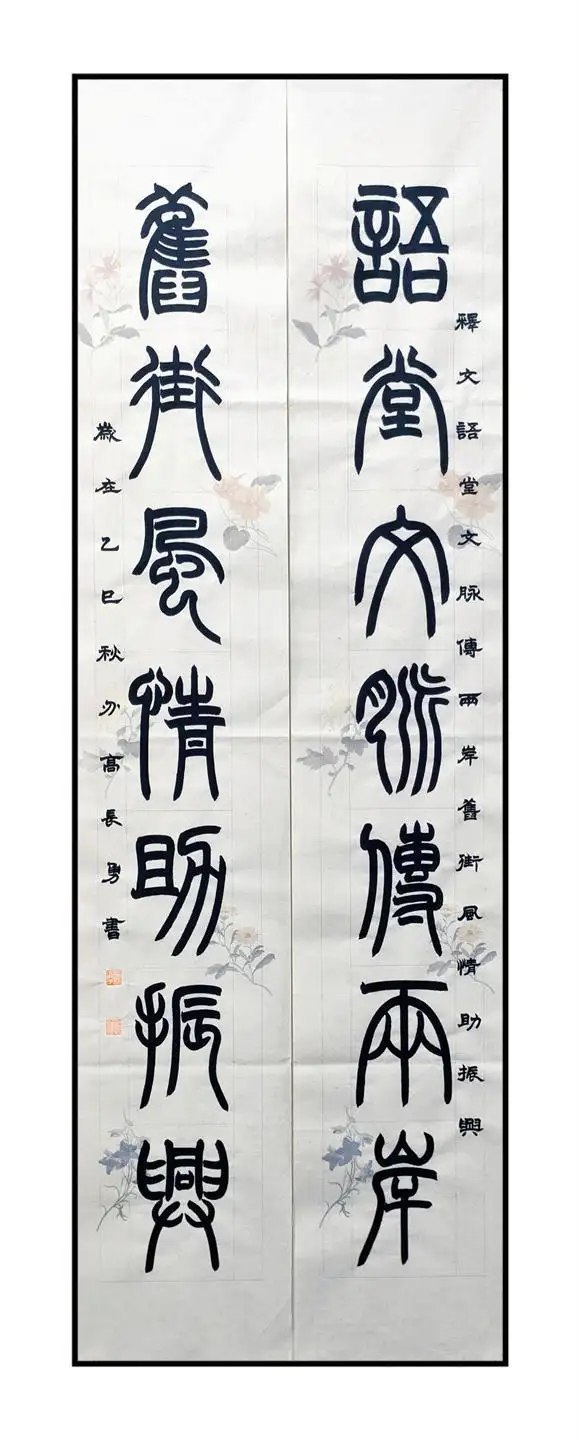 釋文語堂文脉傳兩岸舊街風情助振興
語堂文脉傳兩岸
舊街風情助振興
歲在乙巳秋分高長勇書